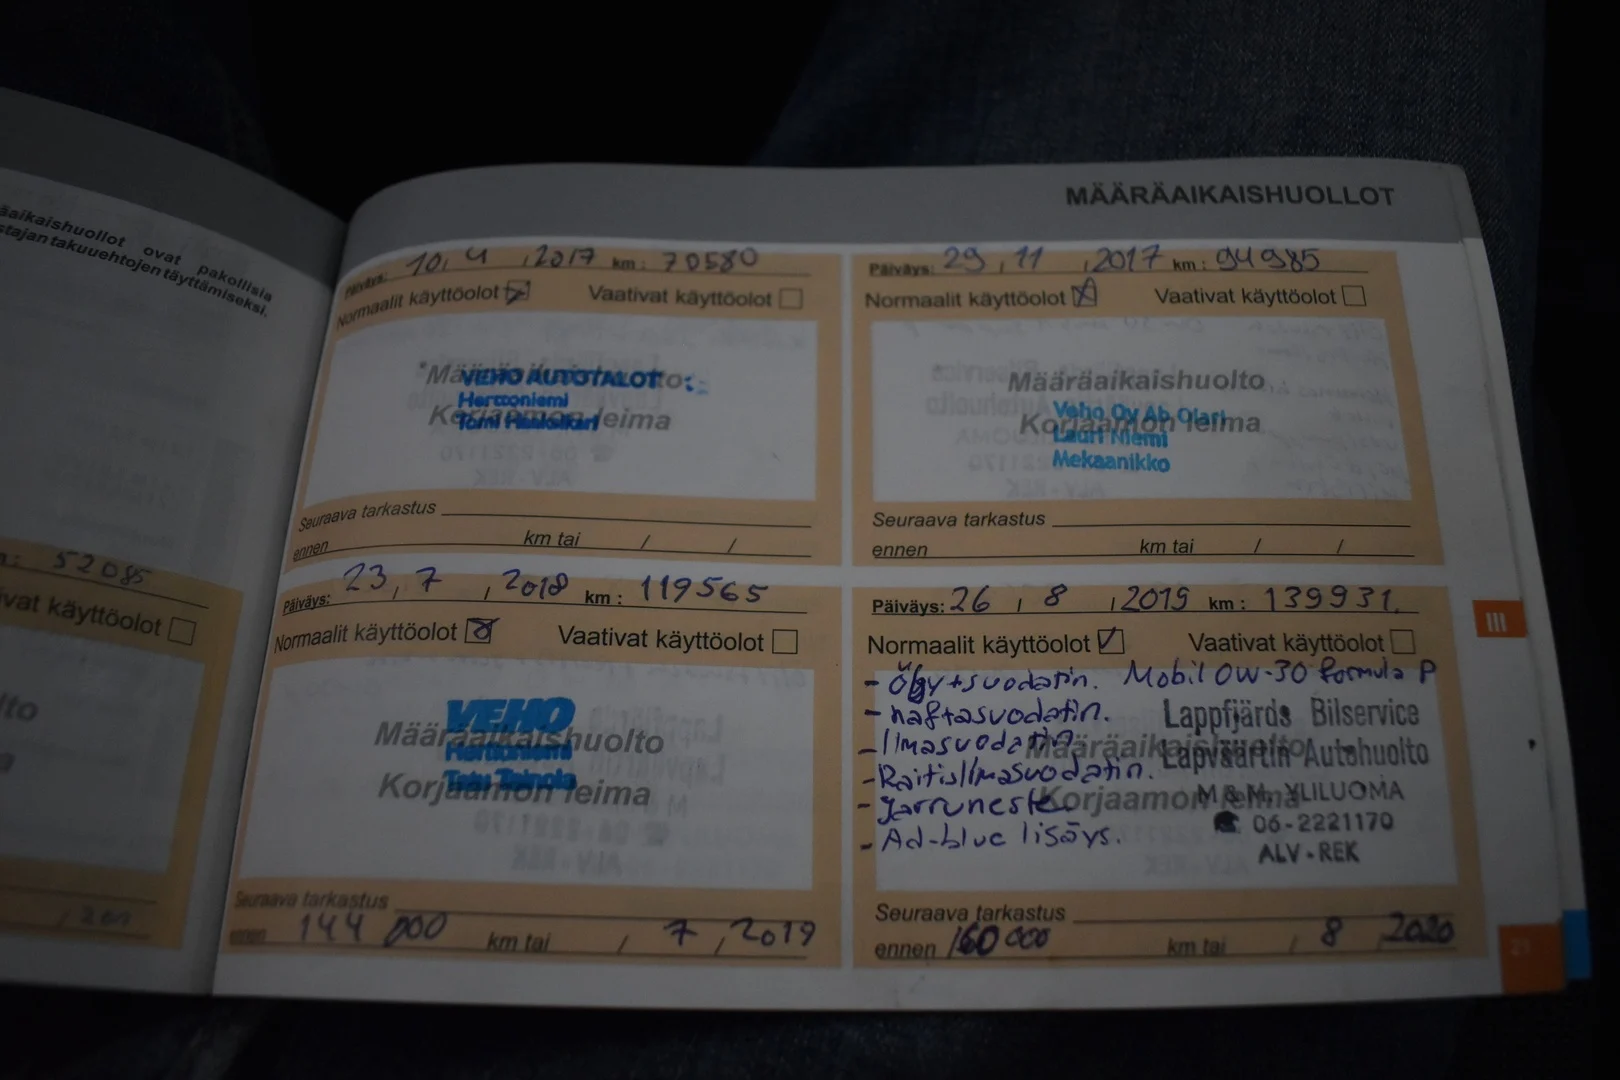 äaikaishuollot ovat pakollisia
stajan takuuehtojen täyttämiseksi.
52085
vat käyttöolot
MÄÄRÄAIKAISHUOLLOT
Päiväys: 10, 4 , 2017 km: 70580
Normaalit käyttöolot Vaativat käyttöolot
VEHO AUTOTALOT
Herttoniemi
Tomi
Korjaamon leima
Seuraava tarkastus
ennen km tai / /
Päiväys: 29, 11 , 2017 km: 94985
Normaalit käyttöolot Vaativat käyttöolot
Määräaikaishuolto
Veho Oy Ab Olari
Korjaamon leima
Lauri Niemi
Mekaanikko
Seuraava tarkastus
ennen km tai / /
Päiväys: 23, 7 , 2018 km: 119565
Normaalit käyttöolot Vaativat käyttöolot
VEHO
Määräaikaishuolto
Herttoniemi
Korjaamon leima
Seuraava tarkastus
ennen 144 000 km tai / 7 , 2019
Päiväys: 26 , 8 , 2019 km: 139931.
Normaalit käyttöolot Vaativat käyttöolot
- Öljy+suodatin. Mobil 0W-30 formula P
- naftasuodatin. Lappfjärds Bilservice
- Ilmasuodatin. Määräaikaishuolto Lapväärtin Autohuolto
- Raitisilmasuodatin.
- Jarruneste Korjaamon leima M & M. YLILUOMA
☎ 06-2221170
- Ad-blue lisäys. ALV-REK
Seuraava tarkastus
ennen 160 000 km tai / 8 , 2020
III
21